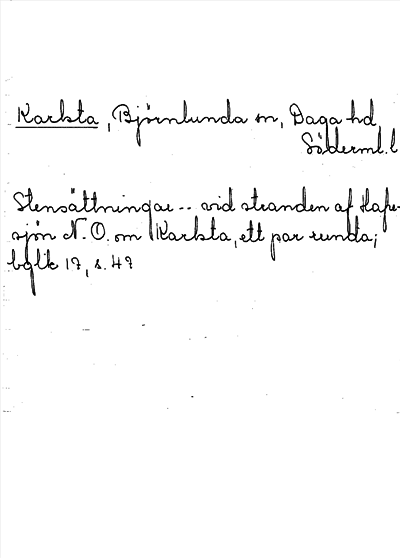 Karkta, Björnlunda sn, Daga hd
Söderml. l
Stensättningar -- vid stranden af Hafe-
sjön N.O. om Karkta, ett par runda;
bglk 17, s. 47